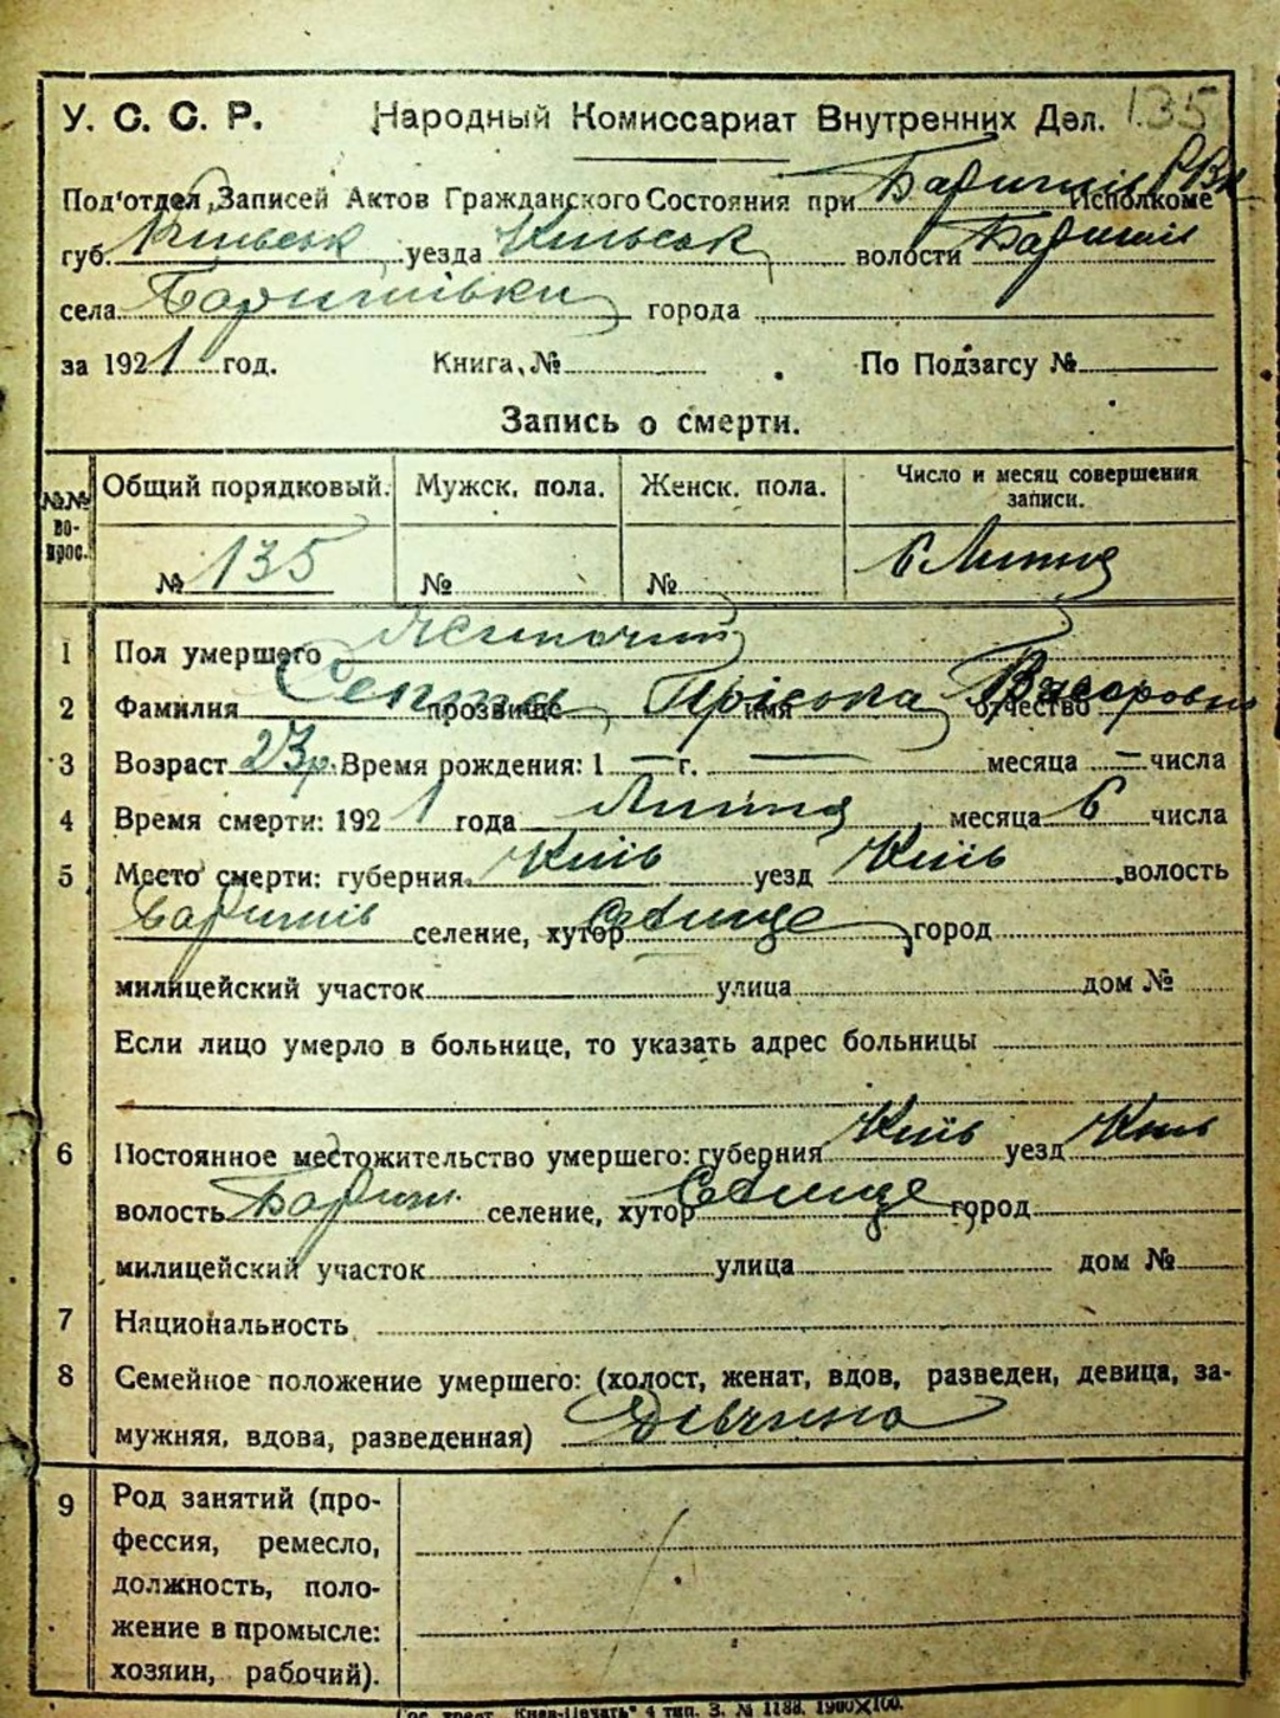 135
У. С. С. Р. Народный Комиссариат Внутренних Дел.
Под'отдел Записей Актов Гражданского Состояния при Баришів РВК Исполкоме
губ. Київськ уезда Київськ волости Баришів
села Баришівки города
за 1921 год. Книга № По Подзагсу №
Запись о смерти.
№№ вопрос. Общий порядковый. Мужск. пола. Женск. пола. Число и месяц совершения записи.
№ 135 № № 6 Липня
1 Пол умершего Жіночий
2 Фамилия прозвище имя Пріська отчество
3 Возраст 23 р. Время рождения: 1 — г. — месяца — числа
4 Время смерти: 1921 года Липня месяца 6 числа
5 Место смерти: губерния Київ уезд Київ волость
Баришів селение, хутор Селище город
милицейский участок улица дом №
Если лицо умерло в больнице, то указать адрес больницы
6 Постоянное местожительство умершего: губерния Київ уезд Київ
волость Бариш. селение, хутор Селище город
милицейский участок улица дом №
7 Национальность
8 Семейное положение умершего: (холост, женат, вдов, разведен, девица, за-
мужняя, вдова, разведенная) Дівчина
9 Род занятий (про-
фессия, ремесло,
должность, поло-
жение в промысле:
хозяин, рабочий).
Гос. трест „Киев-Печать" 4 тип. З. № 1188. 1900×100.